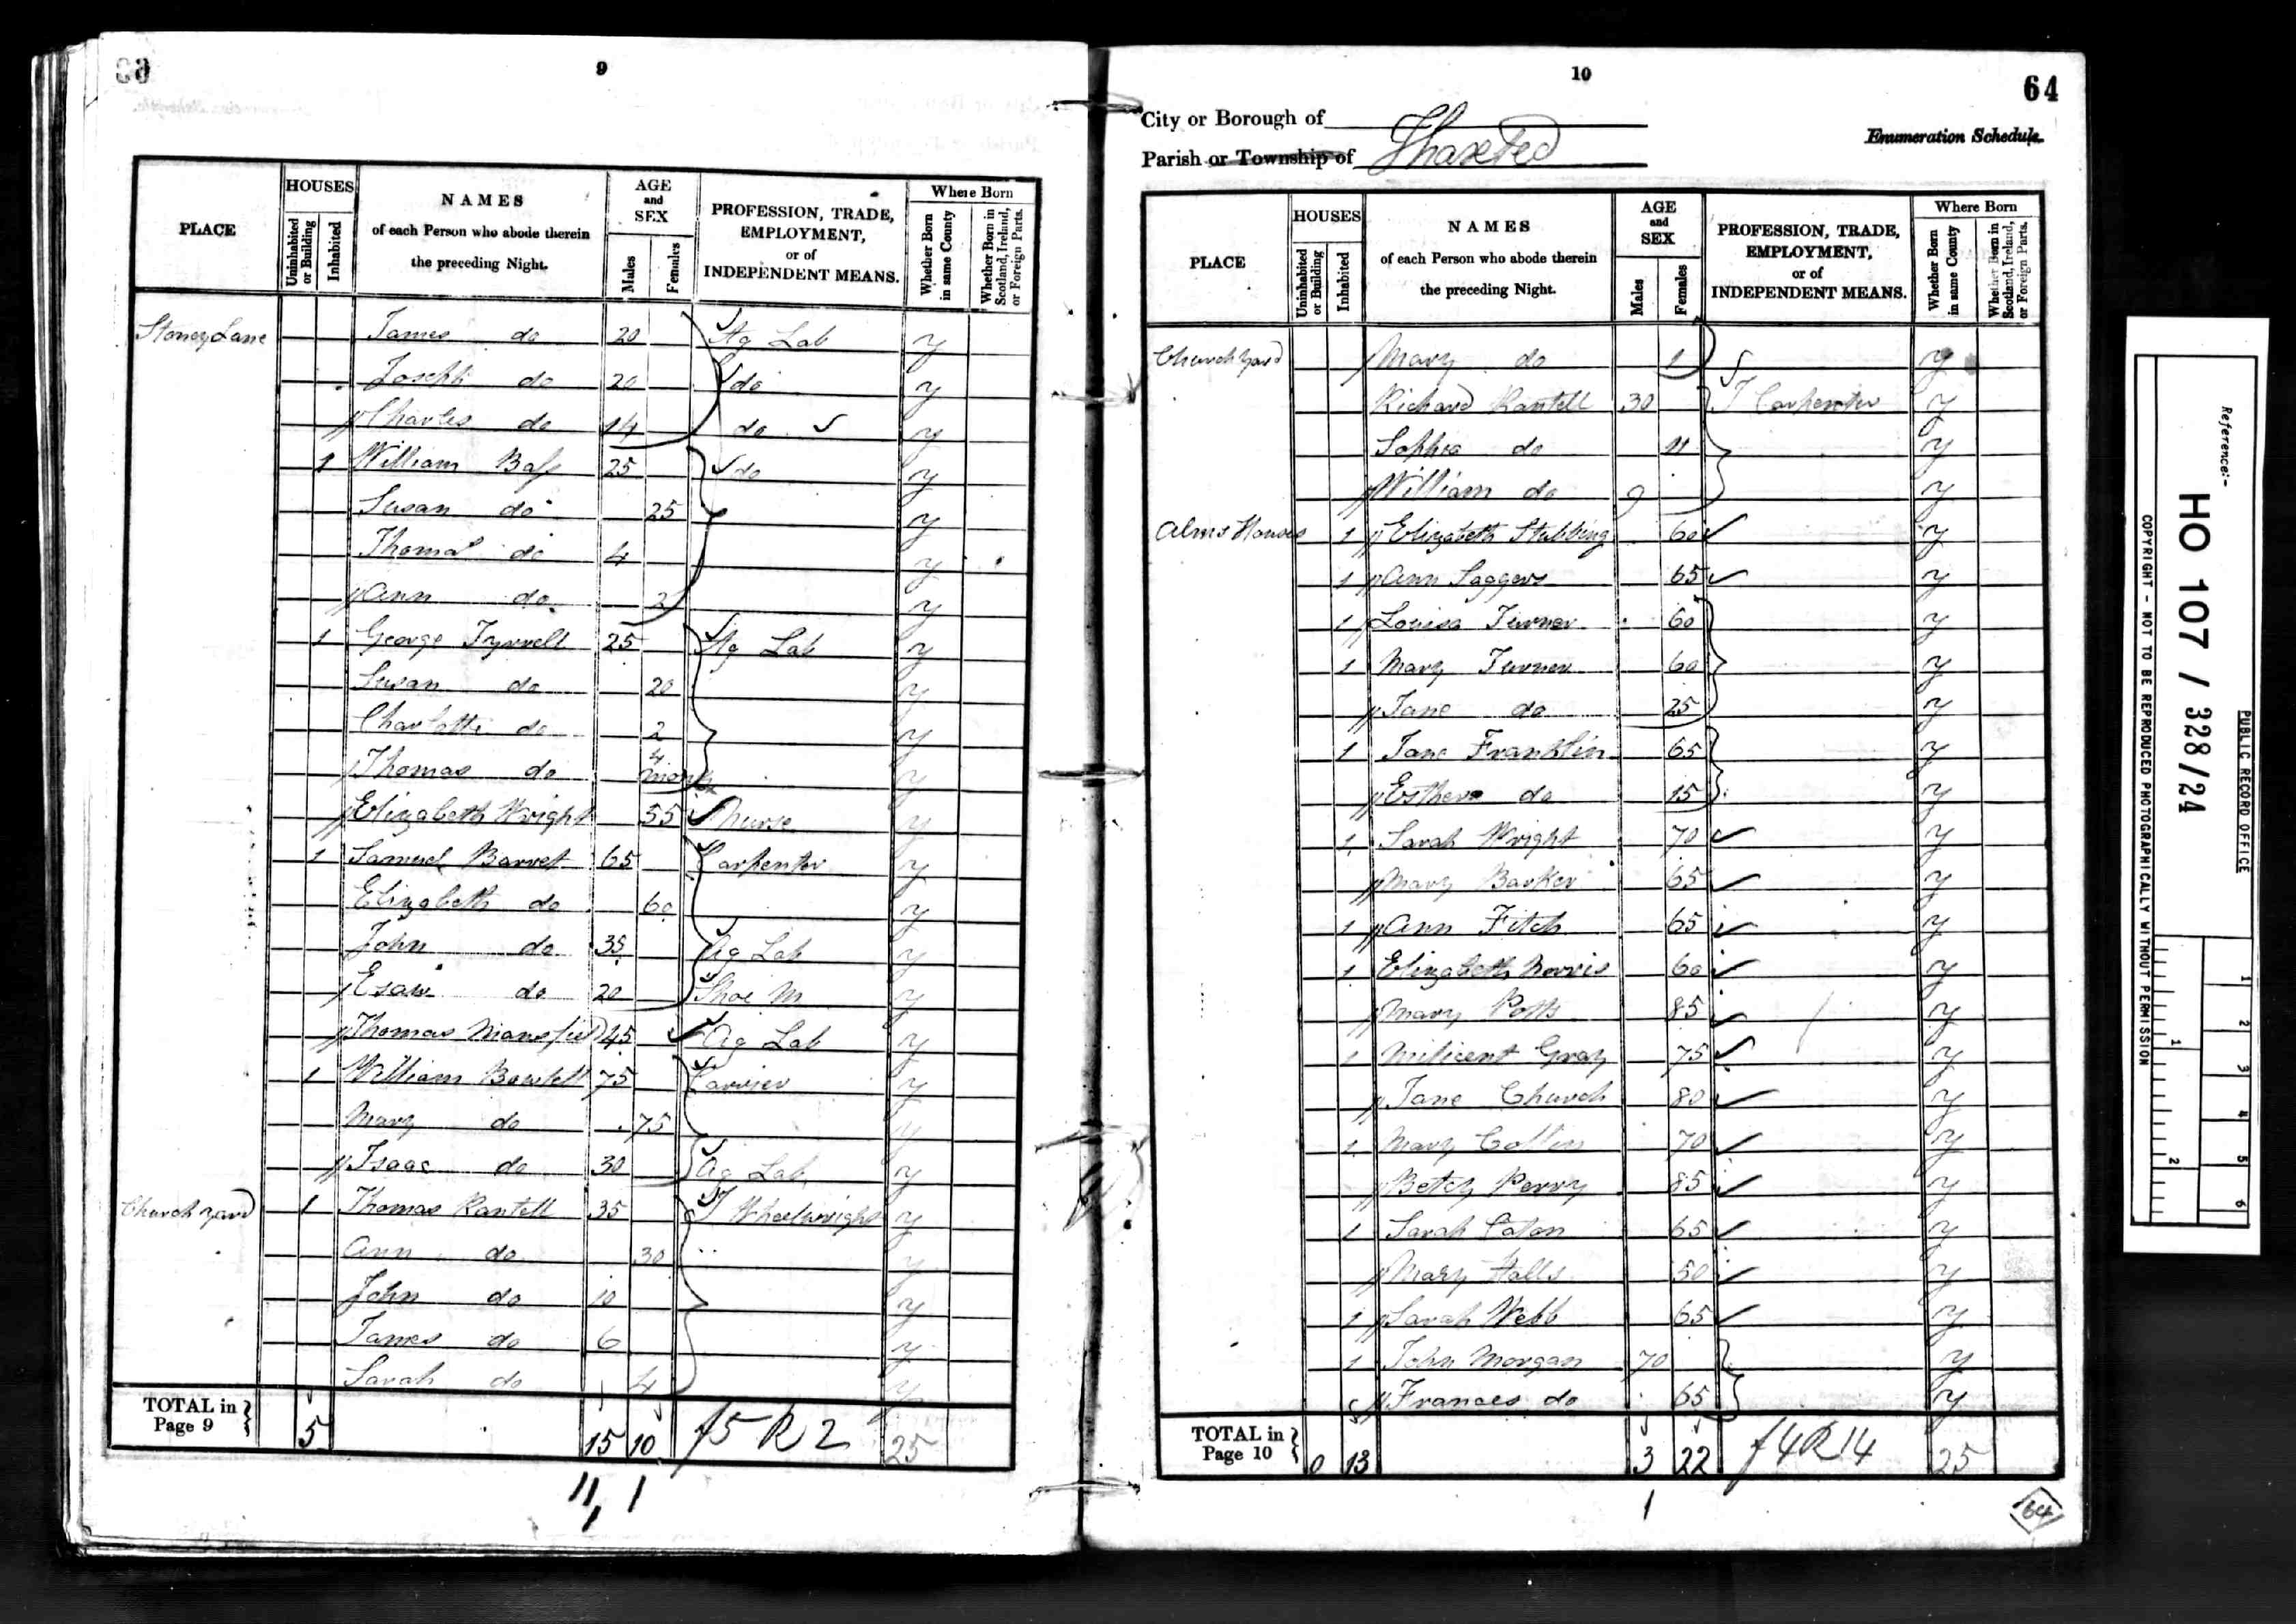 9
PLACE
HOUSES
Uninhabited or Building
Inhabited
NAMES
of each Person who abode therein
the preceding Night.
AGE and SEX
Males
Females
PROFESSION, TRADE,
EMPLOYMENT,
or of
INDEPENDENT MEANS.
Where Born
Whether Born in same County
Whether Born in Scotland, Ireland, or Foreign Parts.
Stoney Lane James do 20 Ag Lab y
Joseph do 20 do y
Charles do 14 do y
1 William Bass 25 do y
Susan do 25 y
Thomas do 4 y
Ann do 2 y
1 George Tyrrell 25 Ag Lab y
Susan do 20 y
Charlotte do 2 y
Thomas do 4 months y
Elizabeth Wright 55 Nurse y
1 Samuel Barret 65 Carpenter y
Elizabeth do 60 y
John do 35 Ag Lab y
Esaw do 20 Shoe M y
Thomas Mansfield 45 Ag Lab y
1 William Bowtell 75 Carrier y
Mary do 75 y
Isaac do 30 Ag Lab y
Church yard 1 Thomas Rantell 35 J Wheelwright y
Ann do 30 y
John do 10 y
James do 6 y
Sarah do 4 y
TOTAL in Page 9 5 15 10 f5 R2 25
11 1
10
64
City or Borough of
Parish or Township of Thaxted
Enumeration Schedule.
PLACE
HOUSES
Uninhabited or Building
Inhabited
NAMES
of each Person who abode therein
the preceding Night.
AGE and SEX
Males
Females
PROFESSION, TRADE,
EMPLOYMENT,
or of
INDEPENDENT MEANS.
Where Born
Whether Born in same County
Whether Born in Scotland, Ireland, or Foreign Parts.
Church yard Mary do 1 y
Richard Rantell 30 J Carpenter y
Sophia do 11 y
William do 9 y
Alms Houses 1 Elizabeth Stubbing 60 y
1 Ann Saggers 65 y
1 Louisa Turner 60 y
1 Mary Turner 60 y
Jane do 25 y
1 Jane Franklin 65 y
Esther do 15 y
1 Sarah Wright 70 y
Mary Barker 65 y
1 Ann Fitch 65 y
1 Elizabeth Norris 60 y
Mary Potts 85 y
1 Milicent Gray 75 y
Jane Church 80 y
1 Mary Collin 70 y
Betey Perry 85 y
1 Sarah Caton 65 y
Mary Halls 50 y
1 Sarah Webb 65 y
1 John Morgan 70 y
Frances do 65 y
TOTAL in Page 10 0 13 3 22 f4 R14 25
1
64
Reference:-
HO 107 / 328/24
PUBLIC RECORD OFFICE
COPYRIGHT - NOT TO BE REPRODUCED PHOTOGRAPHICALLY WITHOUT PERMISSION
1 2
1 2 3 4 5 6